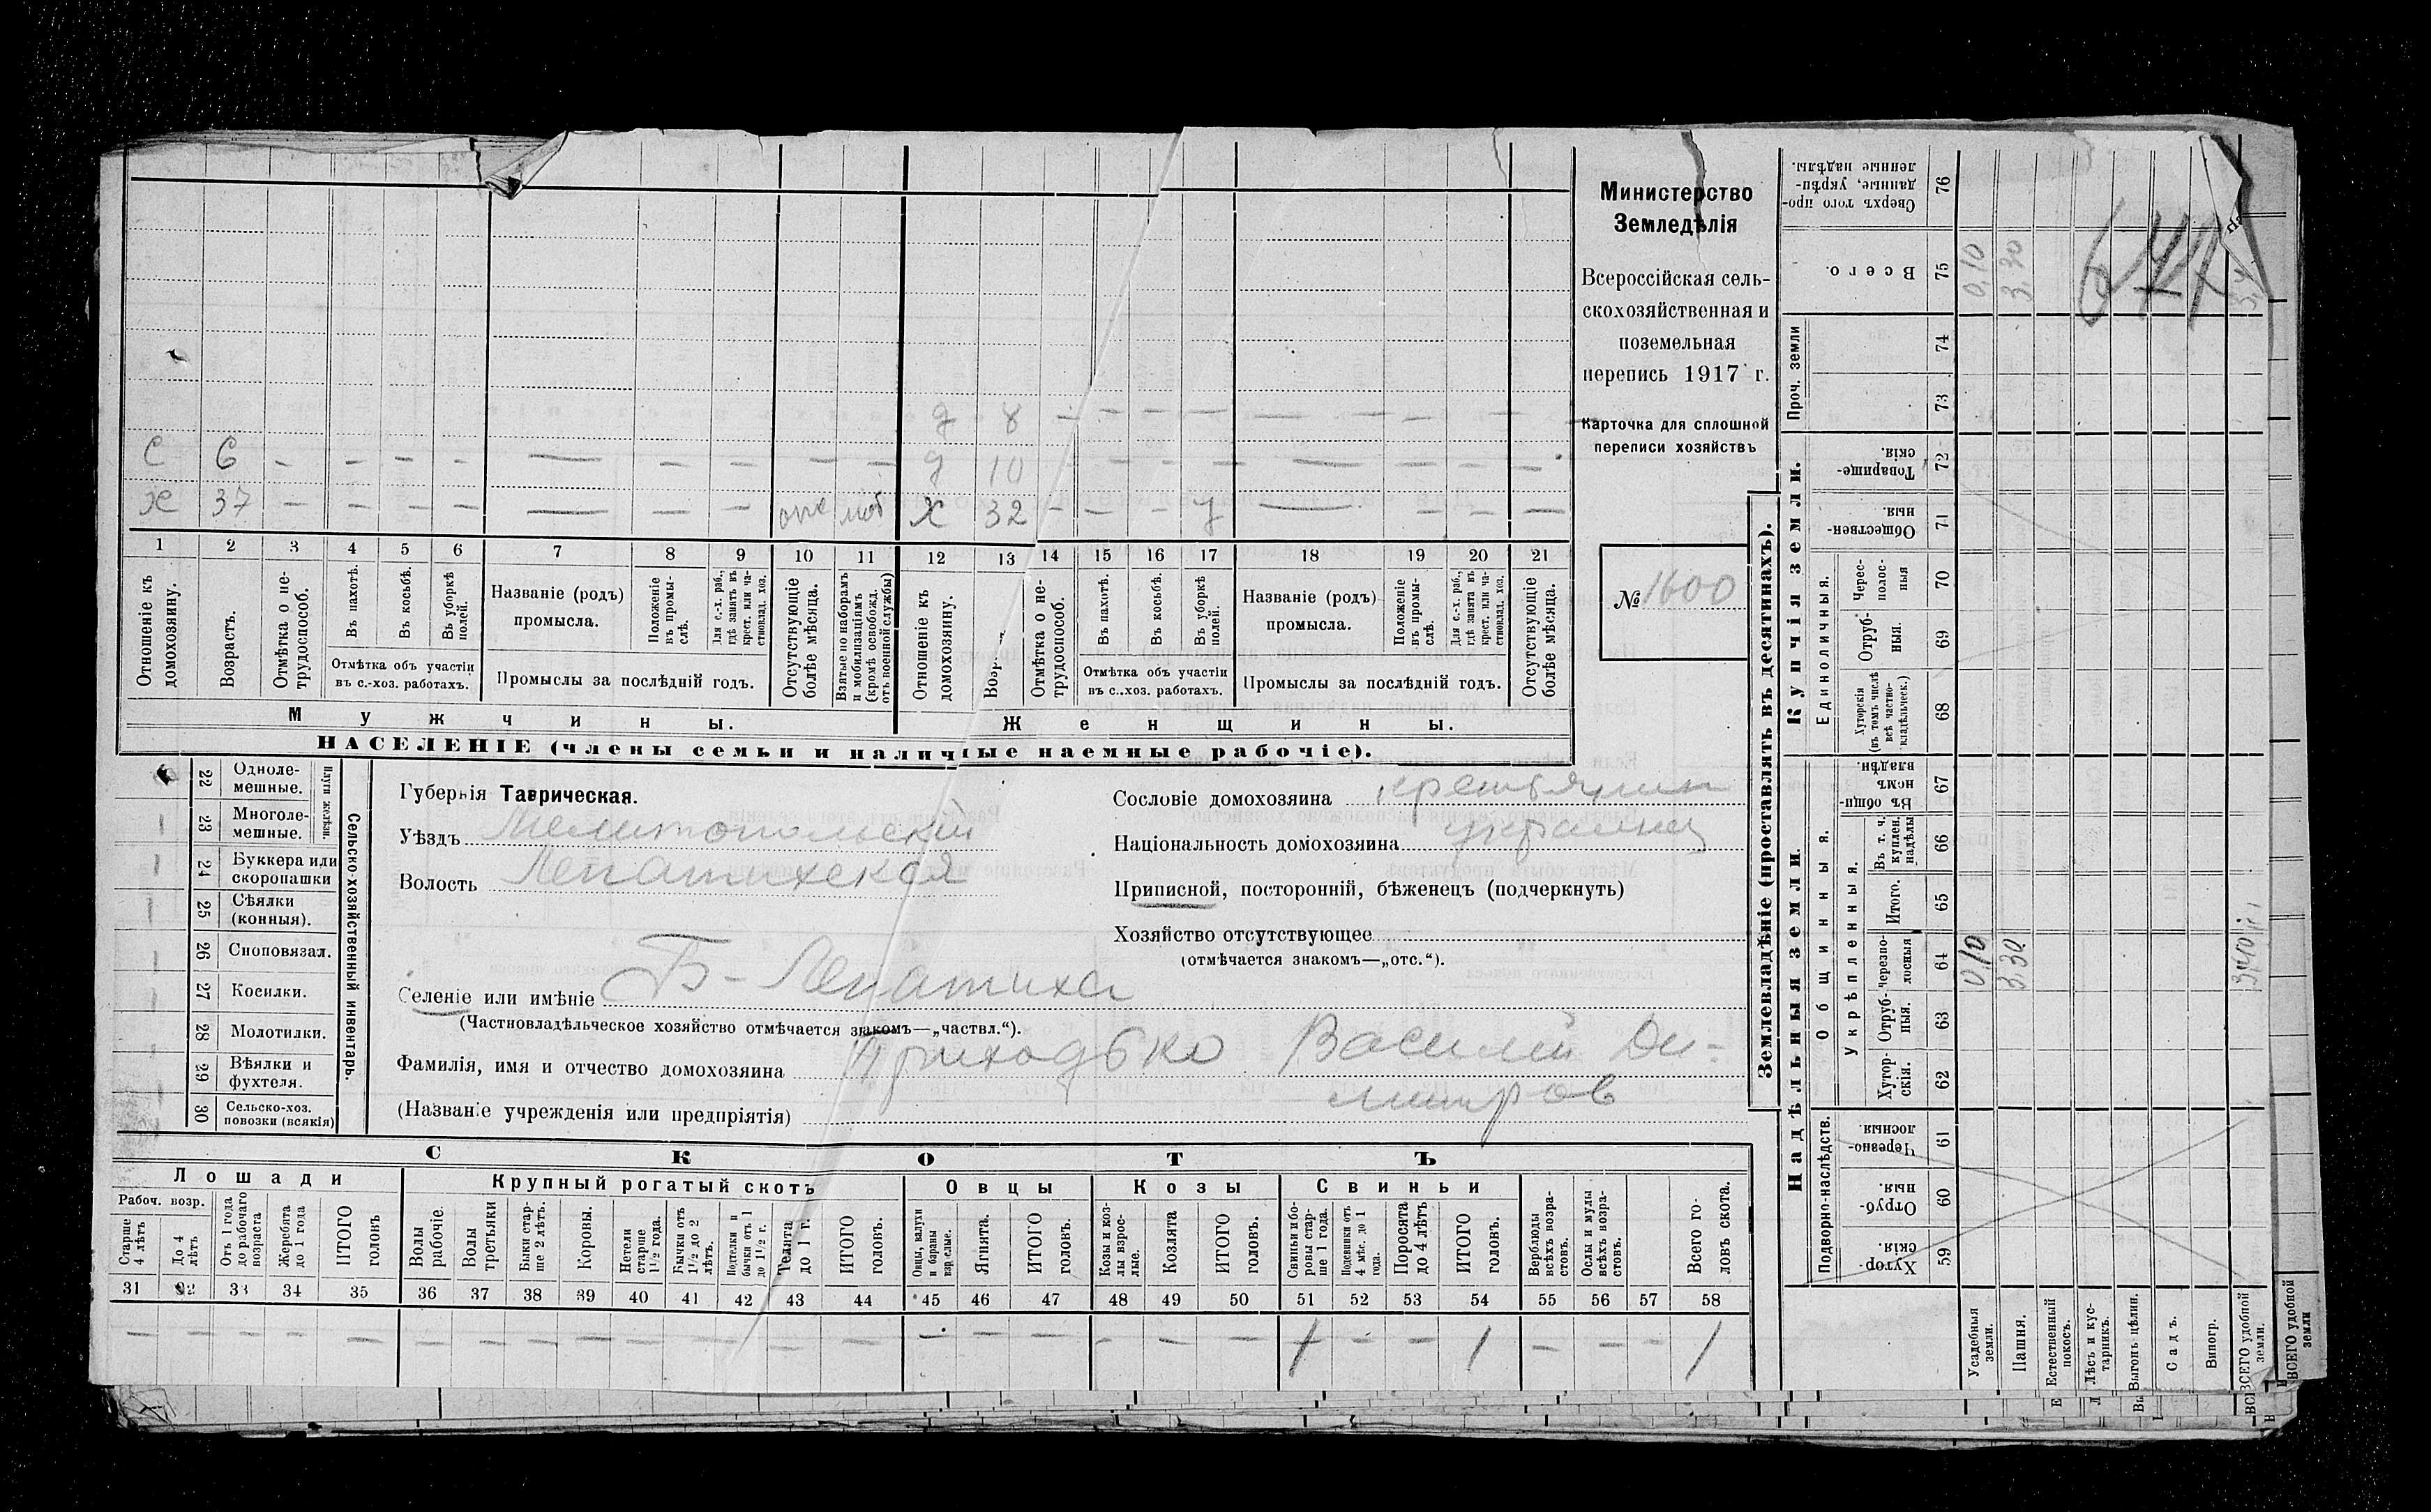 Министерство
Земледѣлія
Всероссійская сель-
скохозяйственная и
поземельная
перепись 1917 г.
Карточка для сплошной
переписи хозяйствъ
№ 1600
д 8 — — — — — — — —
С 6 — — — — — — — — — д 10 — — — — — — — —
Х 37 — — — — — — — отс моб Х 32 — — — у — — — —
1 2 3 4 5 6 7 8 9 10 11 12 13 14 15 16 17 18 19 20 21
Отношеніе къ домохозяину.
Возрастъ.
Отмѣтка о не-трудоспособ.
Въ пахотѣ.
Въ косьбѣ.
Въ уборкѣ полей.
Отмѣтка объ участіи
въ с.-хоз. работахъ.
Названіе (родъ)
промысла.
Положеніе въ промы-слѣ.
Для с.-х. раб., гдѣ занятъ въ крест. или ча-стновлад. хоз.
Промыслы за послѣдній годъ.
Отсутствующіе болѣе мѣсяца.
Взятые по наборамъ и мобилизаціямъ (кромѣ освобожд. отъ военной службы)
Отношеніе къ домохозяину.
Отмѣтка о не-трудоспособ.
Въ пахотѣ.
Въ косьбѣ.
Въ уборкѣ полей.
Отмѣтка объ участіи
въ с.-хоз. работахъ.
Названіе (родъ)
промысла.
Положеніе въ промы-слѣ.
Для с.-х. раб., гдѣ занята въ крест. или ча-стновлад. хоз.
Промыслы за послѣдній годъ.
Отсутствующіе болѣе мѣсяца.
Мужчины.
Женщины.
НАСЕЛЕНІЕ (члены семьи и наличные наемные рабочіе).
Сельско-хозяйственный инвентарь.
Плуги желѣзн.
22 Одноле-мешные.
23 Многоле-мешные.
24 Буккера или скоропашки
25 Сѣялки (конныя).
26 Сноповязал.
27 Косилки.
28 Молотилки.
29 Вѣялки и фухтеля.
30 Сельско-хоз. повозки (всякія)
Губернія Таврическая.
Уѣздъ Мелитопольский
Волость Лепатихская
Селеніе или имѣніе Б-Лепатиха
(Частновладѣльческое хозяйство отмѣчается знакомъ—„частвл.“).
Фамилія, имя и отчество домохозяина Приходько Василий Ди-
митров
(Названіе учрежденія или предпріятія)
Сословіе домохозяина крестьянин
Національность домохозяина украинец
Приписной, посторонній, бѣженецъ (подчеркнуть)
Хозяйство отсутствующее
(отмѣчается знакомъ—„отс.“).
СКОТЪ
Лошади
Крупный рогатый скотъ
Овцы
Козы
Свиньи
Рабоч. возр.
Старше 4 лѣтъ
До 4 лѣтъ
Отъ 1 года до рабочаго возраста
Жеребята до 1 года
ИТОГО головъ
Волы рабочіе.
Волы третьяки
Быки стар-ше 2 лѣтъ.
Коровы.
Нетели старше 1½ года.
Бычки отъ 1½ до 2 лѣтъ.
Подтелки и бычки отъ 1 до 1½ г.
Телята до 1 г.
ИТОГО головъ.
Овцы, валухи и бараны взрослые.
Ягнята.
ИТОГО головъ.
Козы и коз-лы взрос-лые.
Козлята
ИТОГО головъ.
Свиньи и бо-ровы стар-ше 1 года.
Подсвинки отъ 4 мѣс. до 1 года.
Поросята до 4 лѣтъ
ИТОГО головъ.
Верблюды всѣхъ возра-стовъ.
Ослы и мулы всѣхъ возра-стовъ.
Всего го-ловъ скота.
31 32 33 34 35 36 37 38 39 40 41 42 43 44 45 46 47 48 49 50 51 52 53 54 55 56 57 58
— — — — — — — — — — — — — — — — — — — — 1 — — 1 — — — 1
Землевладѣніе (проставлять въ десятинахъ).
Надѣльныя земли.
Купчія земли.
Проч. земли
Подворно-наслѣдств.
Общинныя.
Укрѣпленныя.
Единоличныя.
Сверхъ того про-данные, укрѣп-ленные надѣлы. 76
Всего. 75 0,10 3,30
74
73
Товарище-скія. 72
Обществен-ныя. 71
Черес-полос-ныя 70
Отруб-ныя. 69
Хуторскія (въ томъ числѣ всѣ частно-владѣльческ.) 68
Въ общи-номъ владѣн. 67
Въ т. ч. куплен. надѣлы 66
Итого. 65
Черезпо-лосныя 64 0,10 3,30 3,40
Отруб-ныя. 63
Хутор-скія. 62
Черезпо-лосныя. 61
Отруб-ныя. 60
Хутор-скія. 59
Усадебныя земли.
Пашня.
Естественный покосъ.
Лѣсъ и кус-тарникъ.
Выгонъ цѣлин.
Садъ.
Виногр.
ВСЕГО удобной земли.
ВСЕГО удобной земли